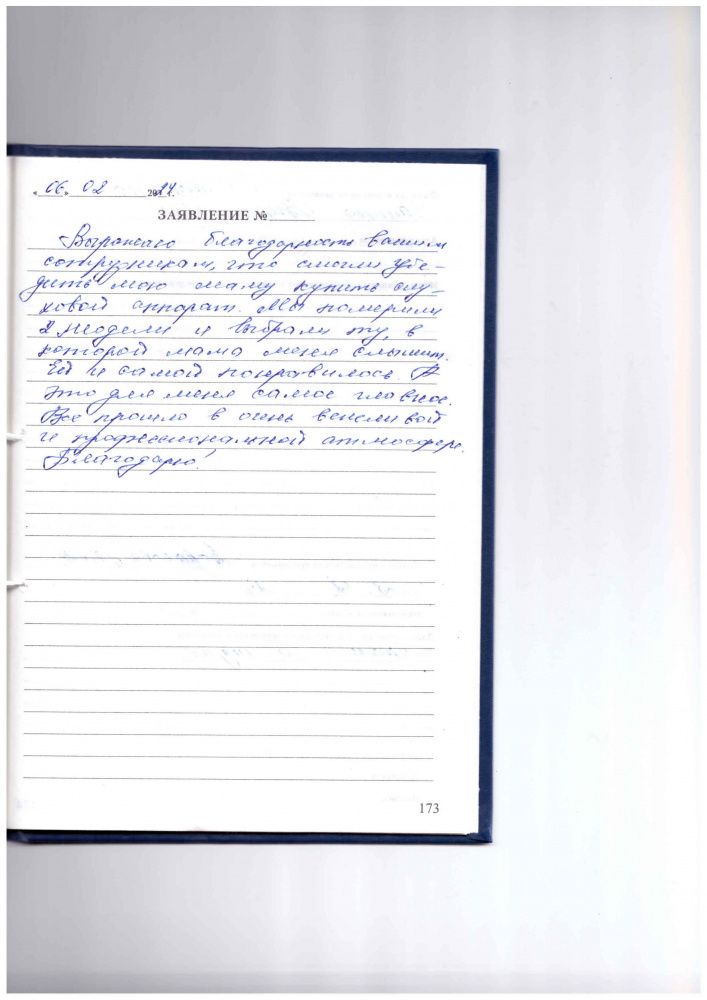 «06» 02 2024 г.
ЗАЯВЛЕНИЕ №
Выражаю благодарность вашим
сотрудникам, что смогли убе-
дить мою маму купить слу-
ховой аппарат. Мы померили
2 модели и выбрали ту, в
которой мама меня слышит.
Ей и самой понравилось. А
это для меня самое главное.
Все прошло в очень вежливой
и профессиональной атмосфере.
Благодарю!
173